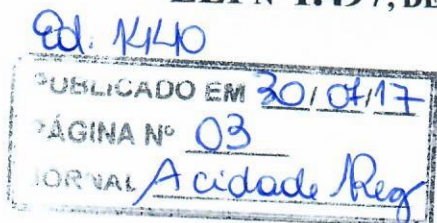 Nº 1.497, DE
Ed. 1440
PUBLICADO EM 30/07/17
PÁGINA Nº 03
JORNAL A cidade Reg